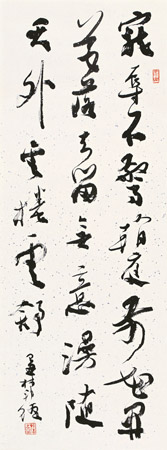 寵辱不驚看庭前花開
花落去留無意漫隨
天外雲捲雲舒